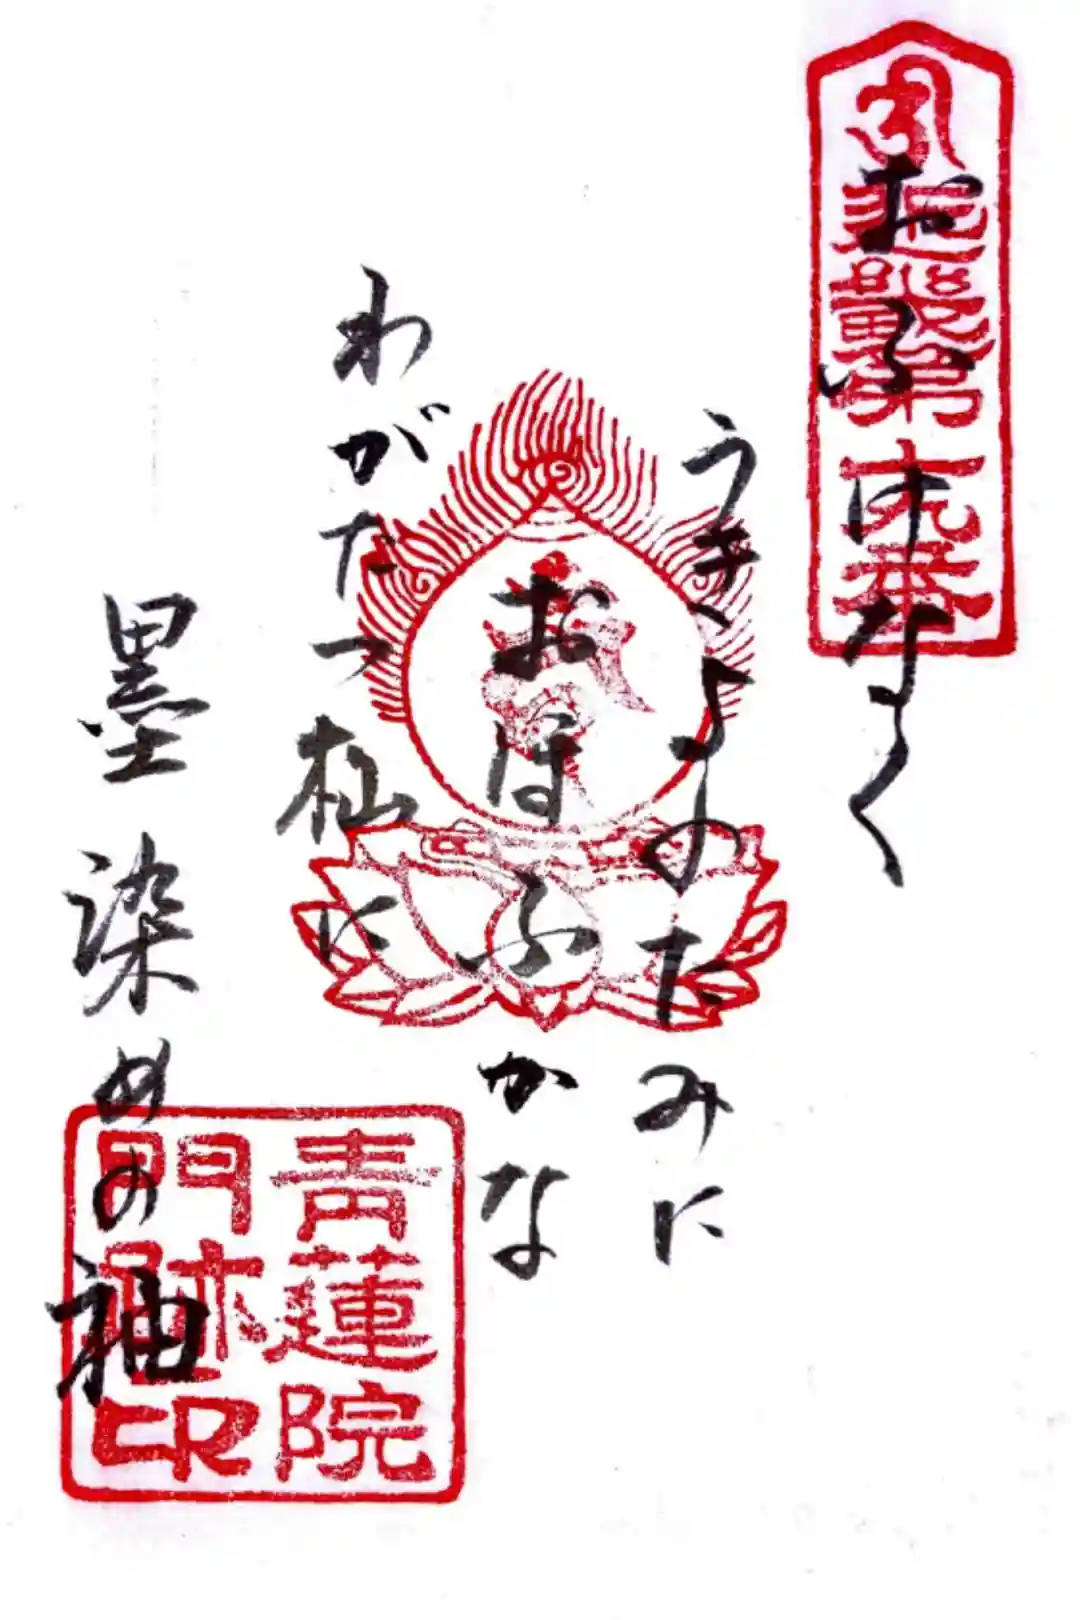 近畿第十九番
おふけなく
うきよのたみに
おほふかな
わがたつ杣に
墨染めの袖
青蓮院
門跡印